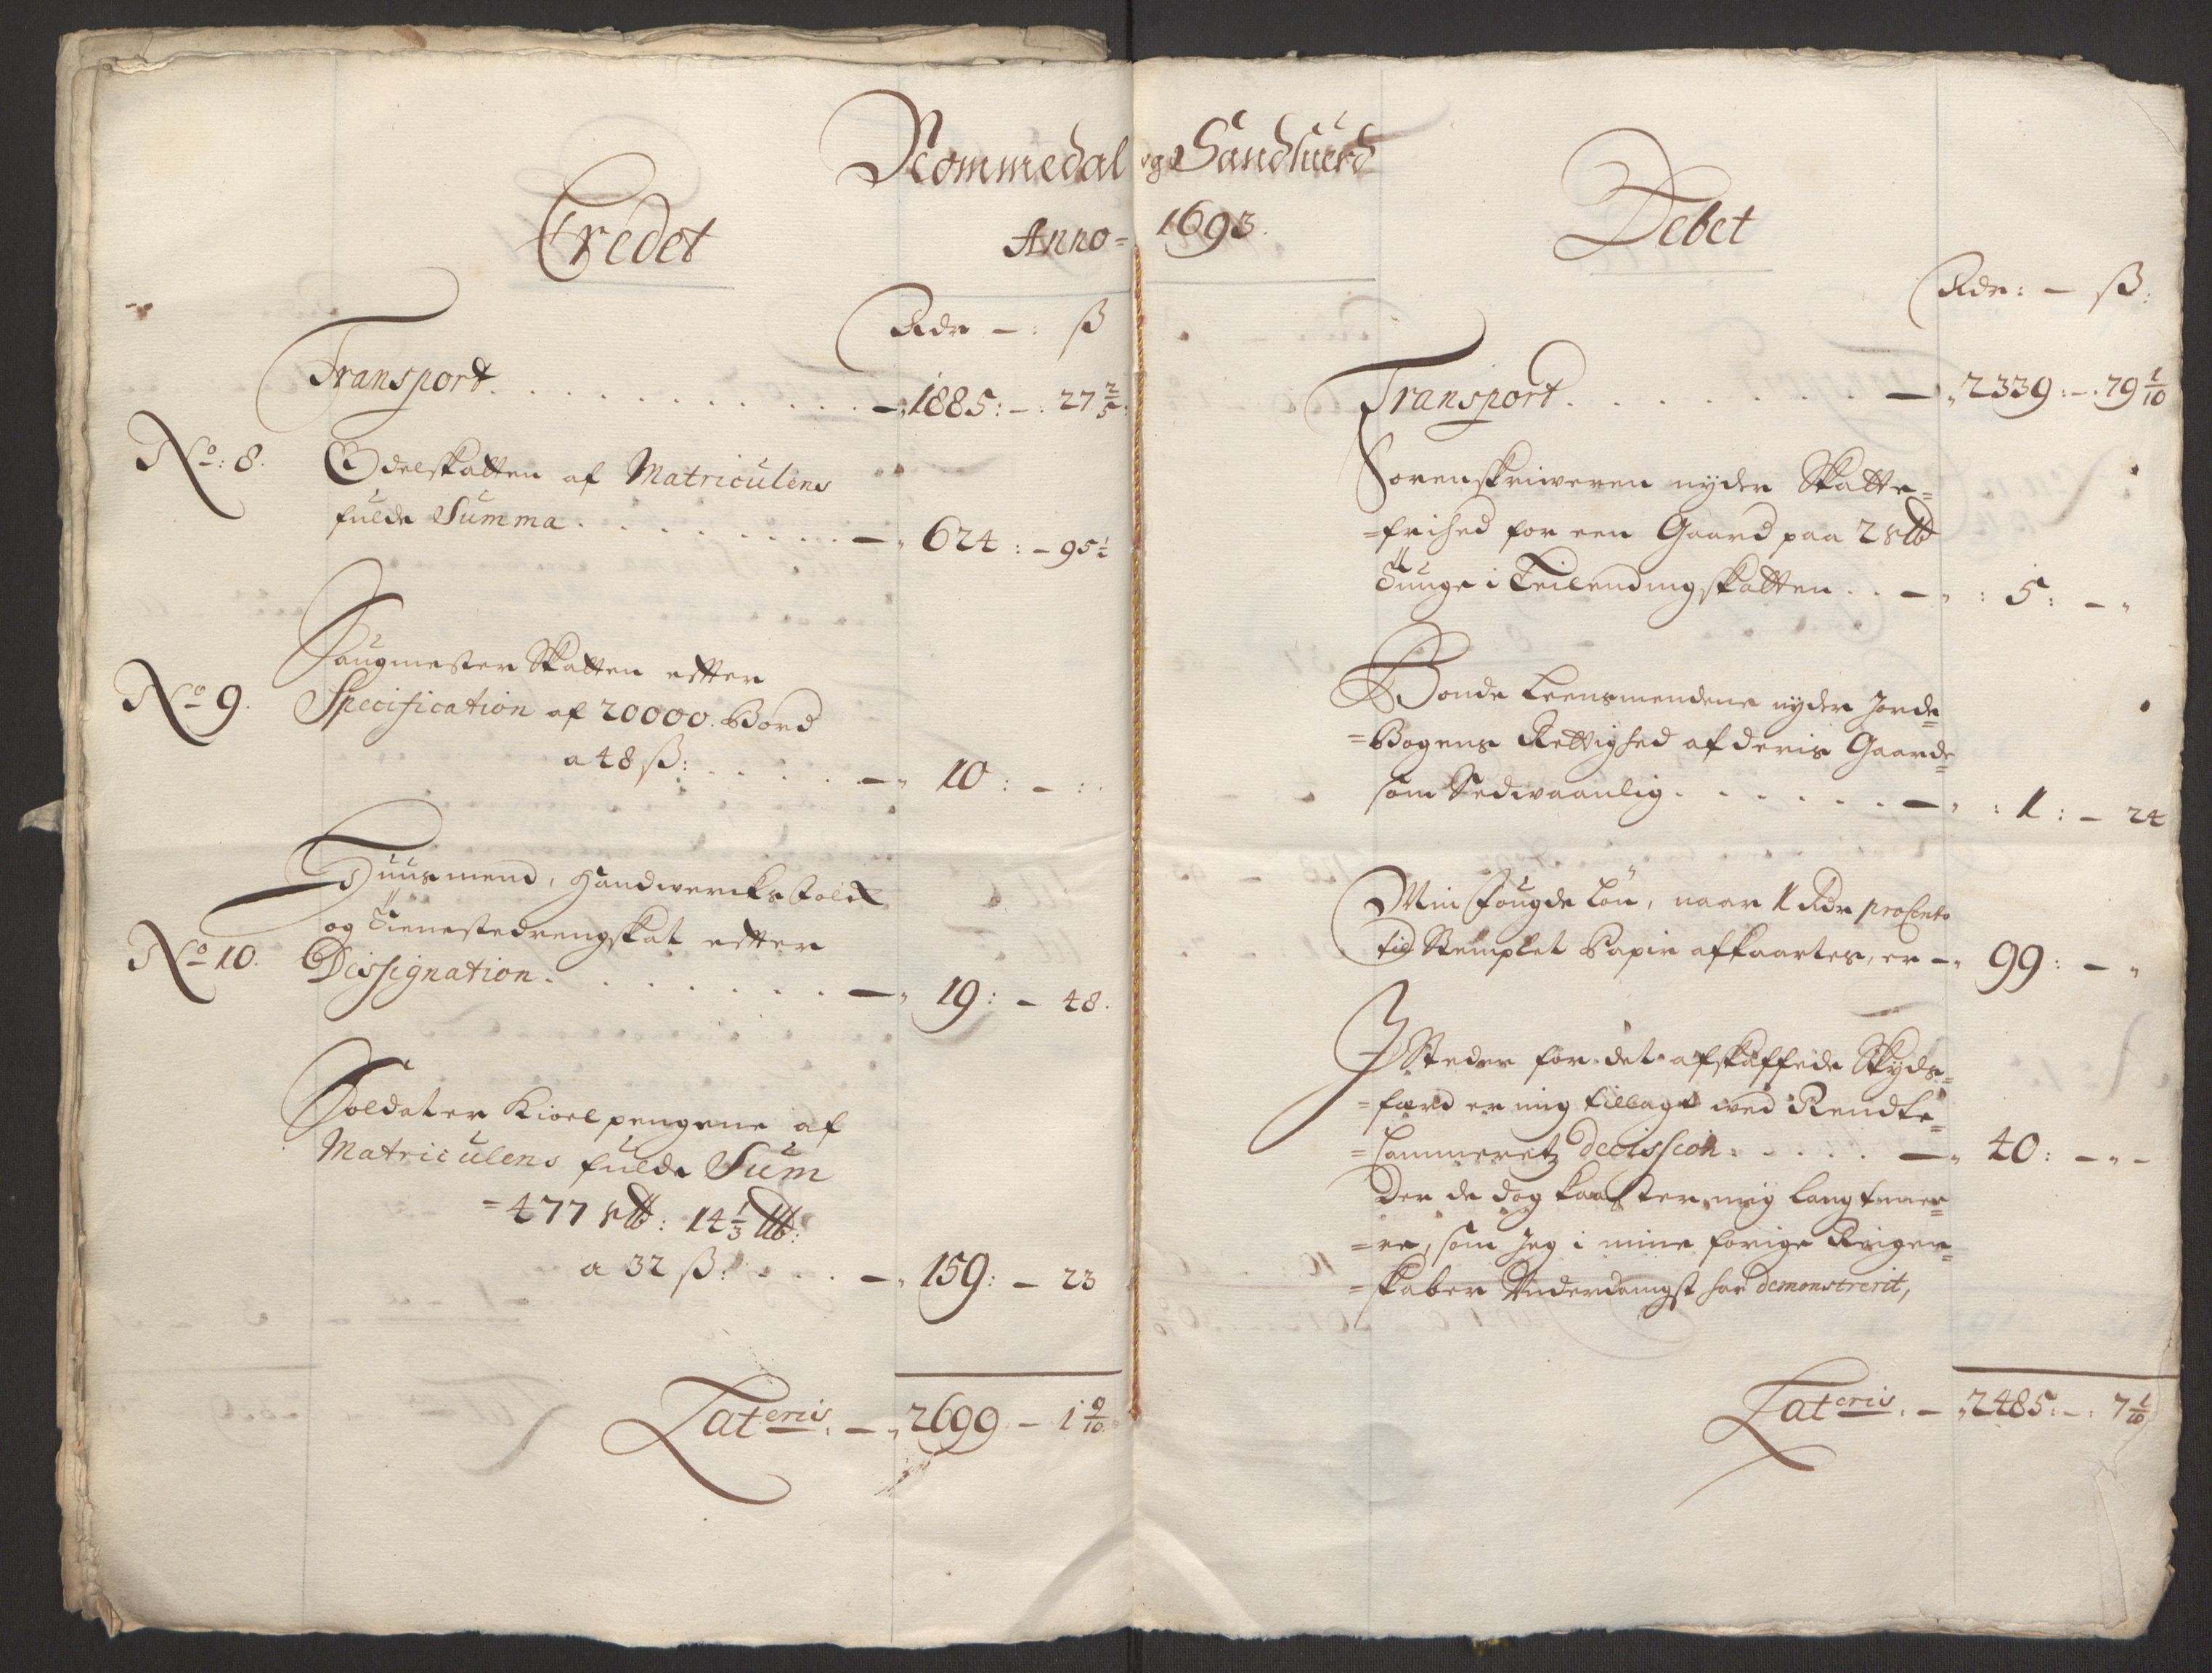 Nommedal og Sandsuerd
Anno= 1693.
Credet
Rdr — : ß
Transport. . . . . . . . . . . . — 1885: — : 27 2/5:
No: 8. Odelskatten af Matriculens
fulde Summa . . . . . . . . . — 624 : — 95 1/2
Saugmester Skatten efter
No 9. Specification af 20000. Bord
a 48 ß: . . . . . — 10 : — :
Huusmend, Handwercks Folck
og Tienestedrengskat efter
No 10. Dessignation . . . . . . . . — 19 : — 48.
Soldater Kioelpengene af
Matriculens fulde Sum
=477 : 14 1/3
a 32 ß: . . . . — 159: — 23
Lateris: — 2699 — 1 9/10
Debet
Rdr: — ß:
Transport. . . . . . . . — 2339: — : 79 1/10
Sorenskriweren nyder Skatte=
=frihed for een Gaard paa 2
Tunge i Leilendingskatten . . — : 5: —
Bonde Leensmendene nyder Jorde=
=Bogens Rettighed af deris Gaarde=
som Sedwaanlig . . . . . . — : 1: — 24
Min Fougde Lön, naar 1 Rdr proCento
til Stemplet Papir afkaartes, er — 99: —
I Steden for det afskaffede Skyds=
=færd er mig tillagt wed Rendte=
=Cammeretz decission . . . . . — 40: — —
der da dog kaaster mig langt mee=
=re, som Jeg i mine forige Regen=
=skaber Underdanigst har demonstrerit,
Lateris: — 2485: — : 7 1/10